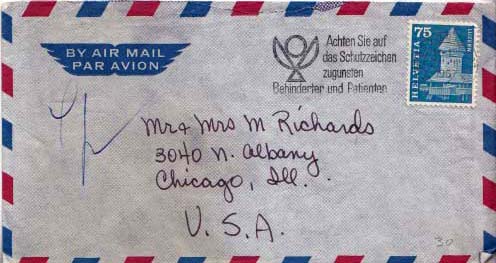 BY AIR MAIL
PAR AVION
Achten Sie auf
das Schutzzeichen
zugunsten
Behinderter und Patienten
75
HELVETIA
Mr & Mrs M Richards
3040 N. Albany
Chicago, Ill.
U. S. A.
30